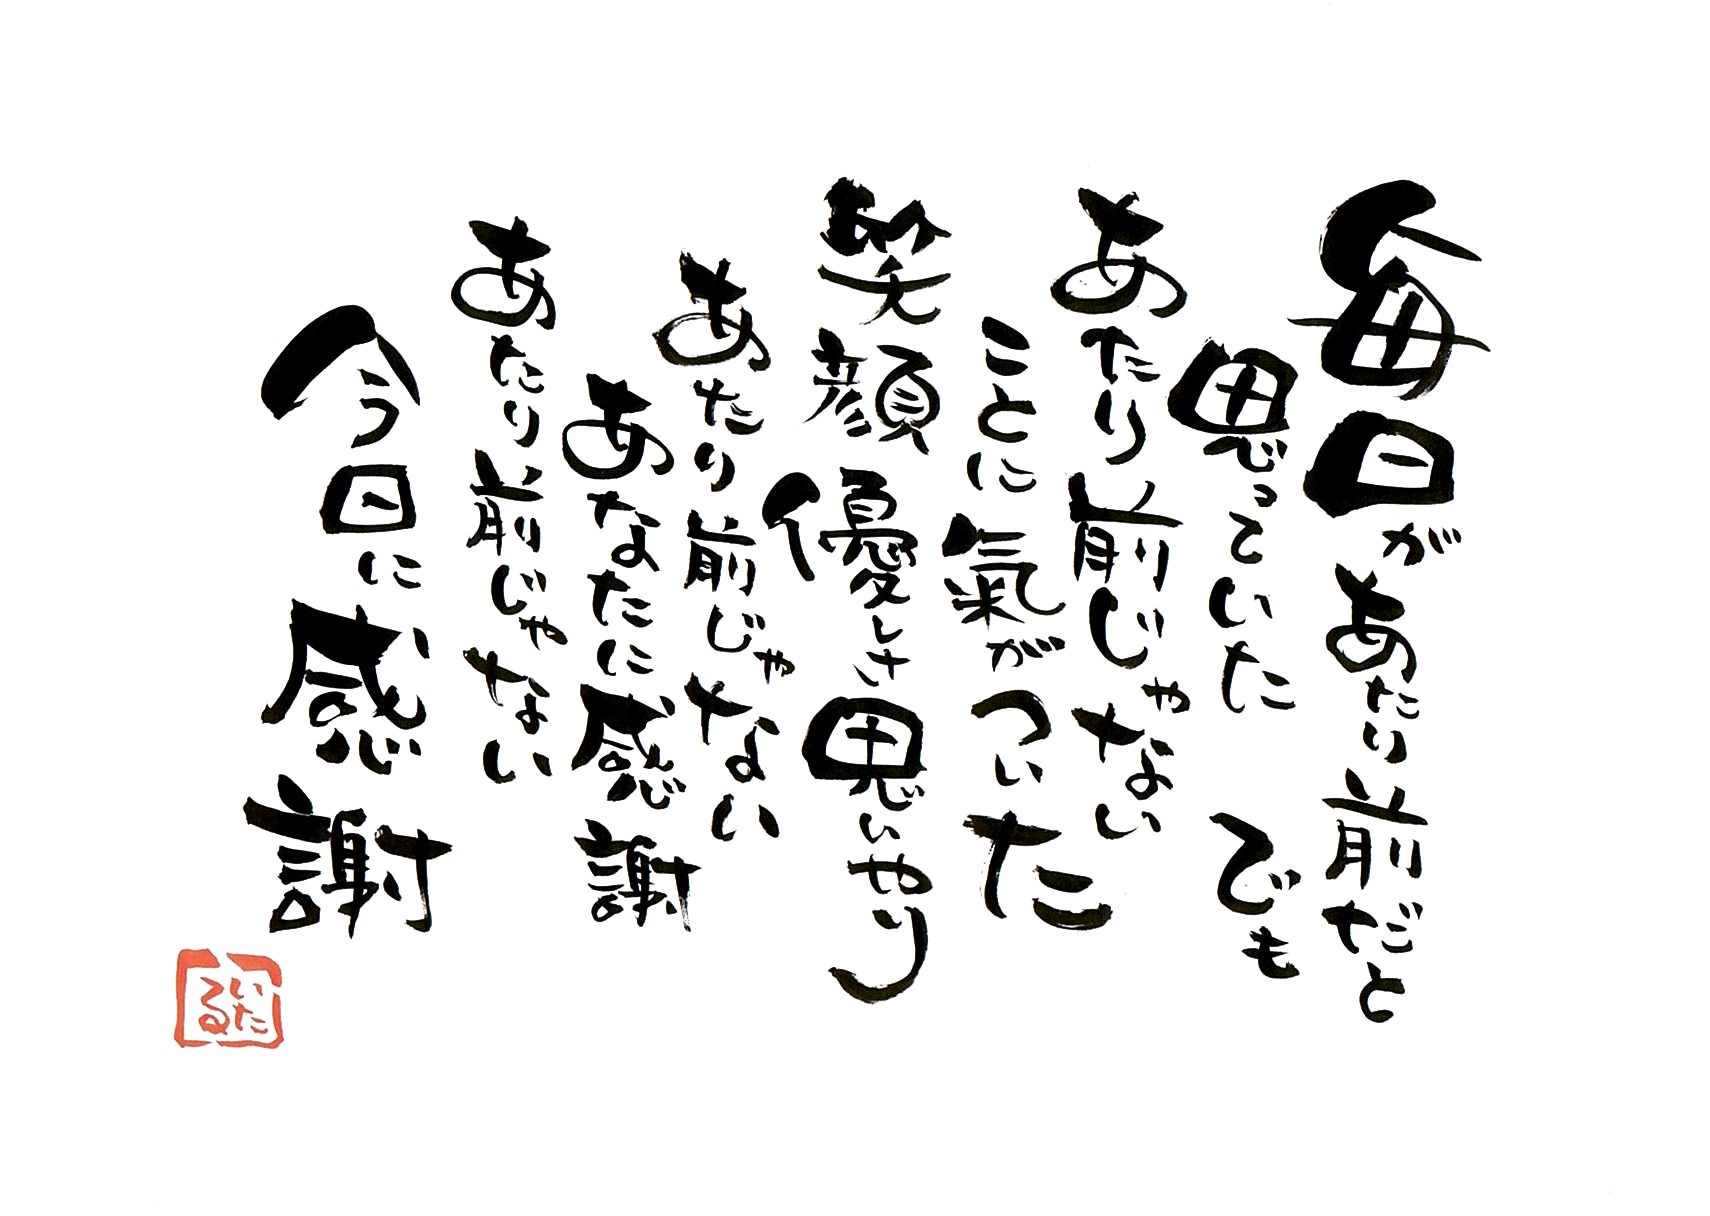 毎日があたり前だと
思っていた　でも
あたり前じゃない
ことに氣がついた
笑顔　優しさ　思いやり
あたり前じゃない
あなたに感謝
あたり前じゃない
今日に感謝
いたる